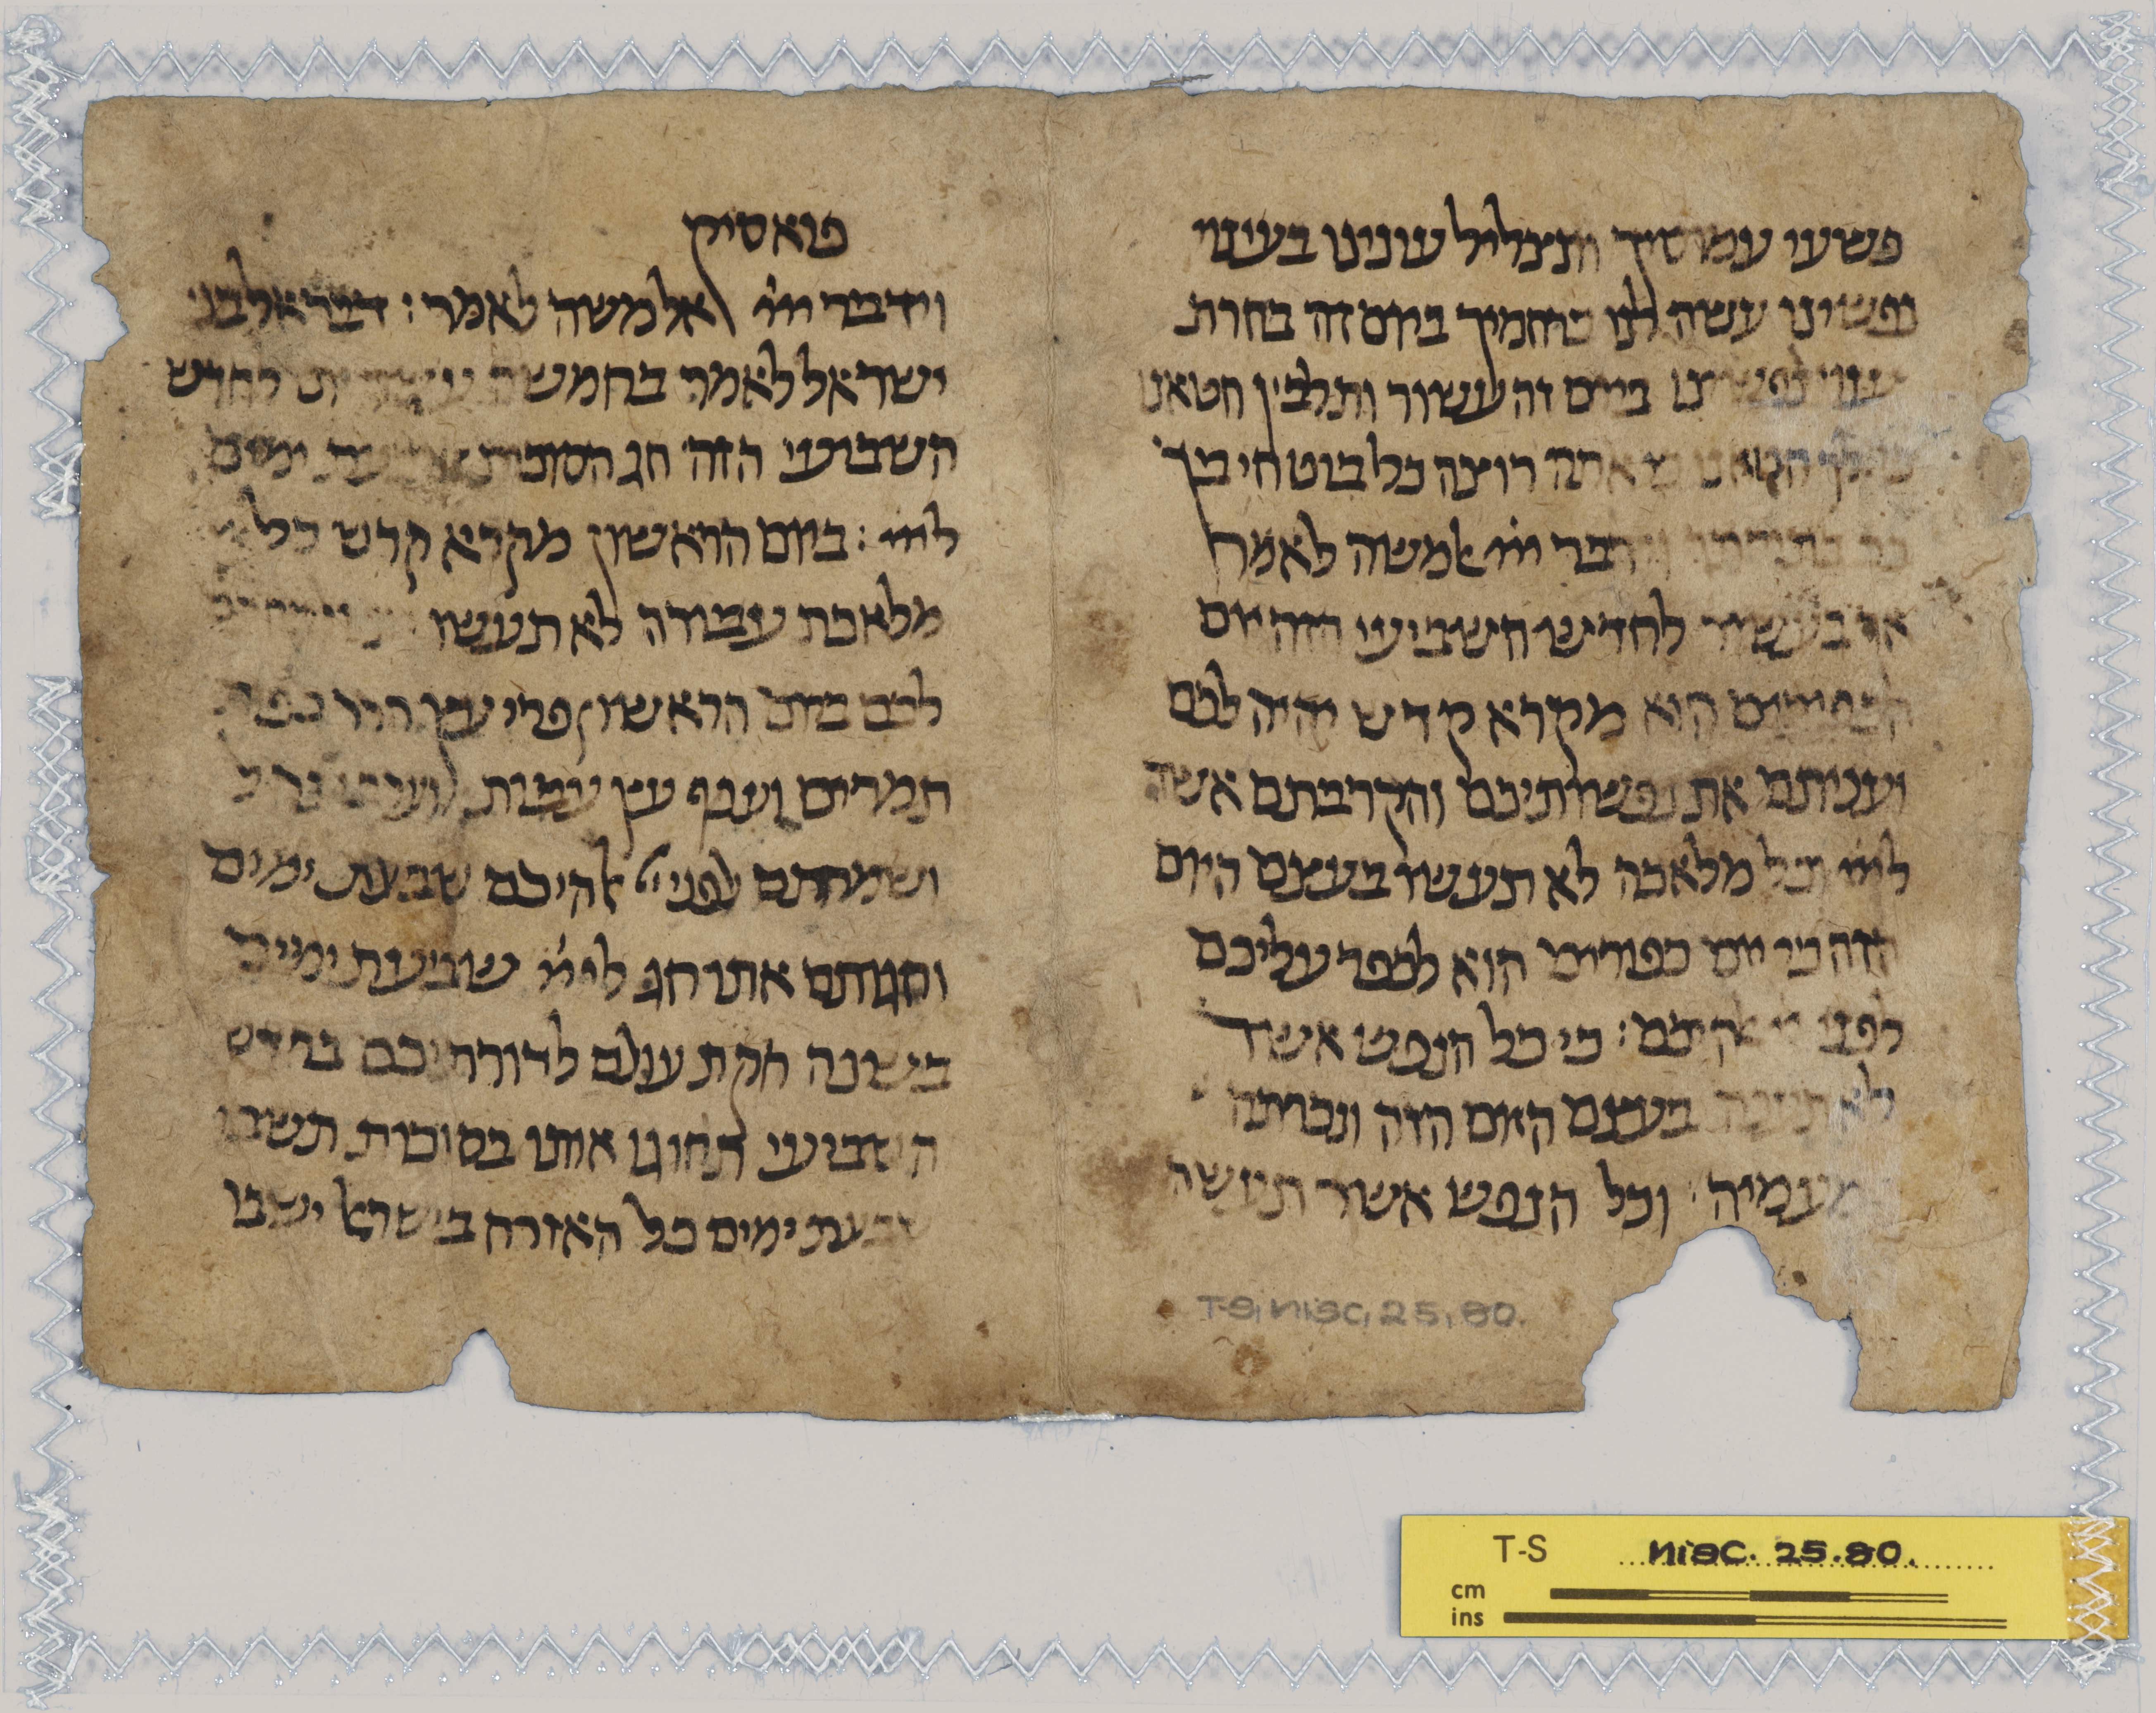 פשעי עמוסיך ותצליל עונינו בעינוי
נפשינו עשה לנו כרחמיך ביום זה בחרת
ענוי נפשותינו ביום זה עשור ותלבין חטאנו
אתה רוצה כל בוטחי בך
וידבר ייי למשה לאמר
אך בעשור לחדש השביעי הזה יום
הכפורים הוא מקרא קדש יהיה לכם
ועניתם את נפשותיכם והקרבתם אשה
לייי וכל מלאכה לא תעשו בעצם היום
הזה כי יום כפורים הוא לכפר עליכם
לפני ייי אלהיכם : כי כל הנפש אשר
לא תענה בעצם היום הזה ונכרתה
מעמיה : וכל הנפש אשר תעשה
פואסיק
וידבר ייי אל משה לאמר : דבר אל בני
ישראל לאמר בחמשה עשר יום לחדש
השביעי הזה חג הסוכות שבעת ימים
לייי : ביום הראשון מקרא קדש כל
מלאכת עבודה לא תעשו
לכם ביום הראשון פרי עץ הדר כפת
תמרים וענף עץ עבות וערבי נחל
ושמחתם לפני ייי אלהיכם שבעת ימים
וחגותם אתו חג לייי שבעת ימים
בשנה חקת עולם לדורתיכם בחדש
השביעי תחוגו אותו בסוכות תשבו
שבעת ימים כל האזרח בישראל ישבו
T-S, Misc, 25, 80.
T-S Misc. 25.80.
cm
ins